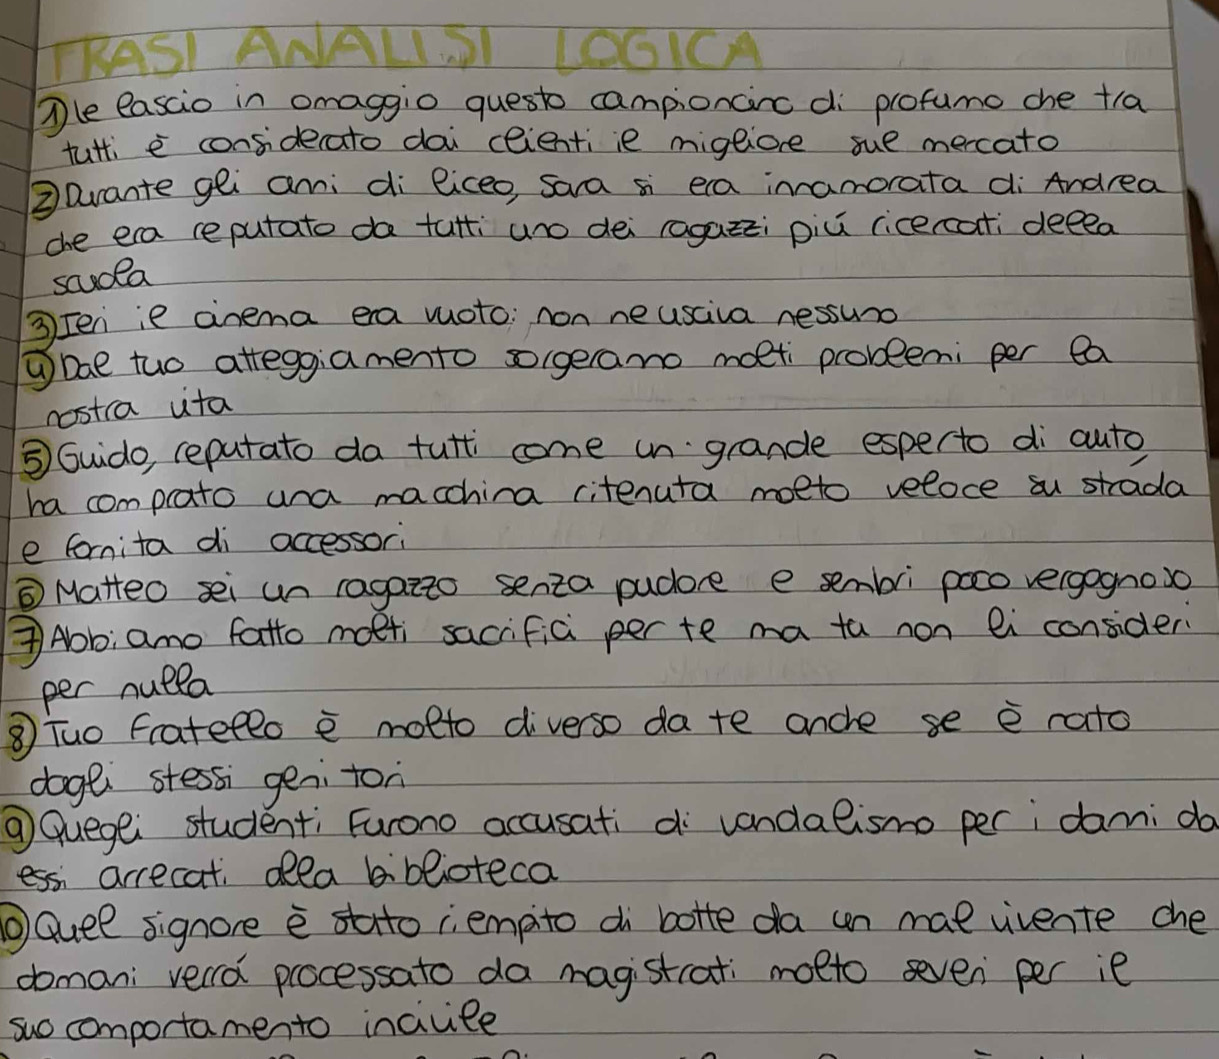 FRASI ANALISI LOGICA
① le lascio in omaggio questo campioncino di profumo che tra
tutti è considerato dai clienti il migliore sul mercato
② Durante gli anni di liceo, Sara si era innamorata di Andrea
che era reputato da tutti uno dei ragazzi più ricercati della
scuola
③ Ieri il cinema era vuoto: non ne usciva nessuno
④ Dal tuo atteggiamento sorgeranno molti problemi per la
nostra vita
⑤ Guido, reputato da tutti come un grande esperto di auto,
ha comprato una macchina ritenuta molto veloce su strada
e fornita di accessori
⑥ Matteo sei un ragazzo senza pudore e sembri poco vergognoso
⑦ Abbiamo fatto molti sacrifici per te ma tu non li consideri
per nulla
⑧ Tuo fratello è molto diverso da te anche se è nato
dagli stessi genitori
⑨ Quegli studenti furono accusati di vandalismo per i danni da
essi arrecati alla biblioteca
⑩ Quel signore è stato riempito di botte da un mal vivente che
domani verrà processato da magistrati molto severi per il
suo comportamento incivile